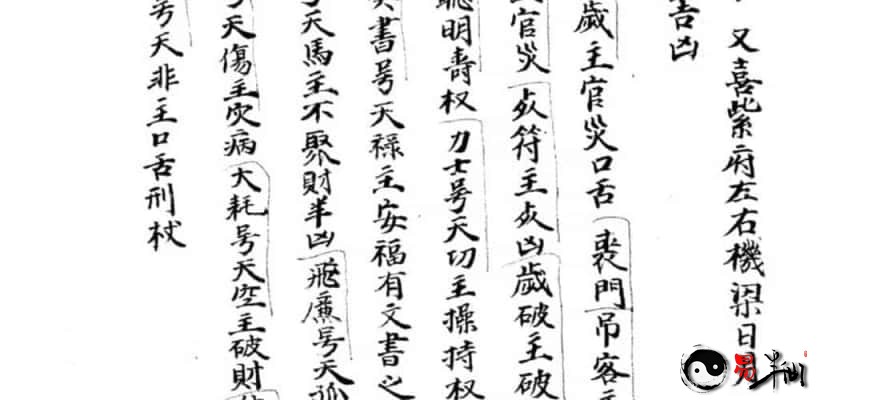 又喜紫府左右機梁日月
吉凶
歲主官災口舌喪門吊客主
官災歿符主歿凶歲破主破
聰明壽权力士号天切主操持权
奏書号天祿主安福有文書之
号天馬主不聚財半凶飛廉号天孤
号天傷主灾病大耗号天空主破財
号天非主口舌刑杖